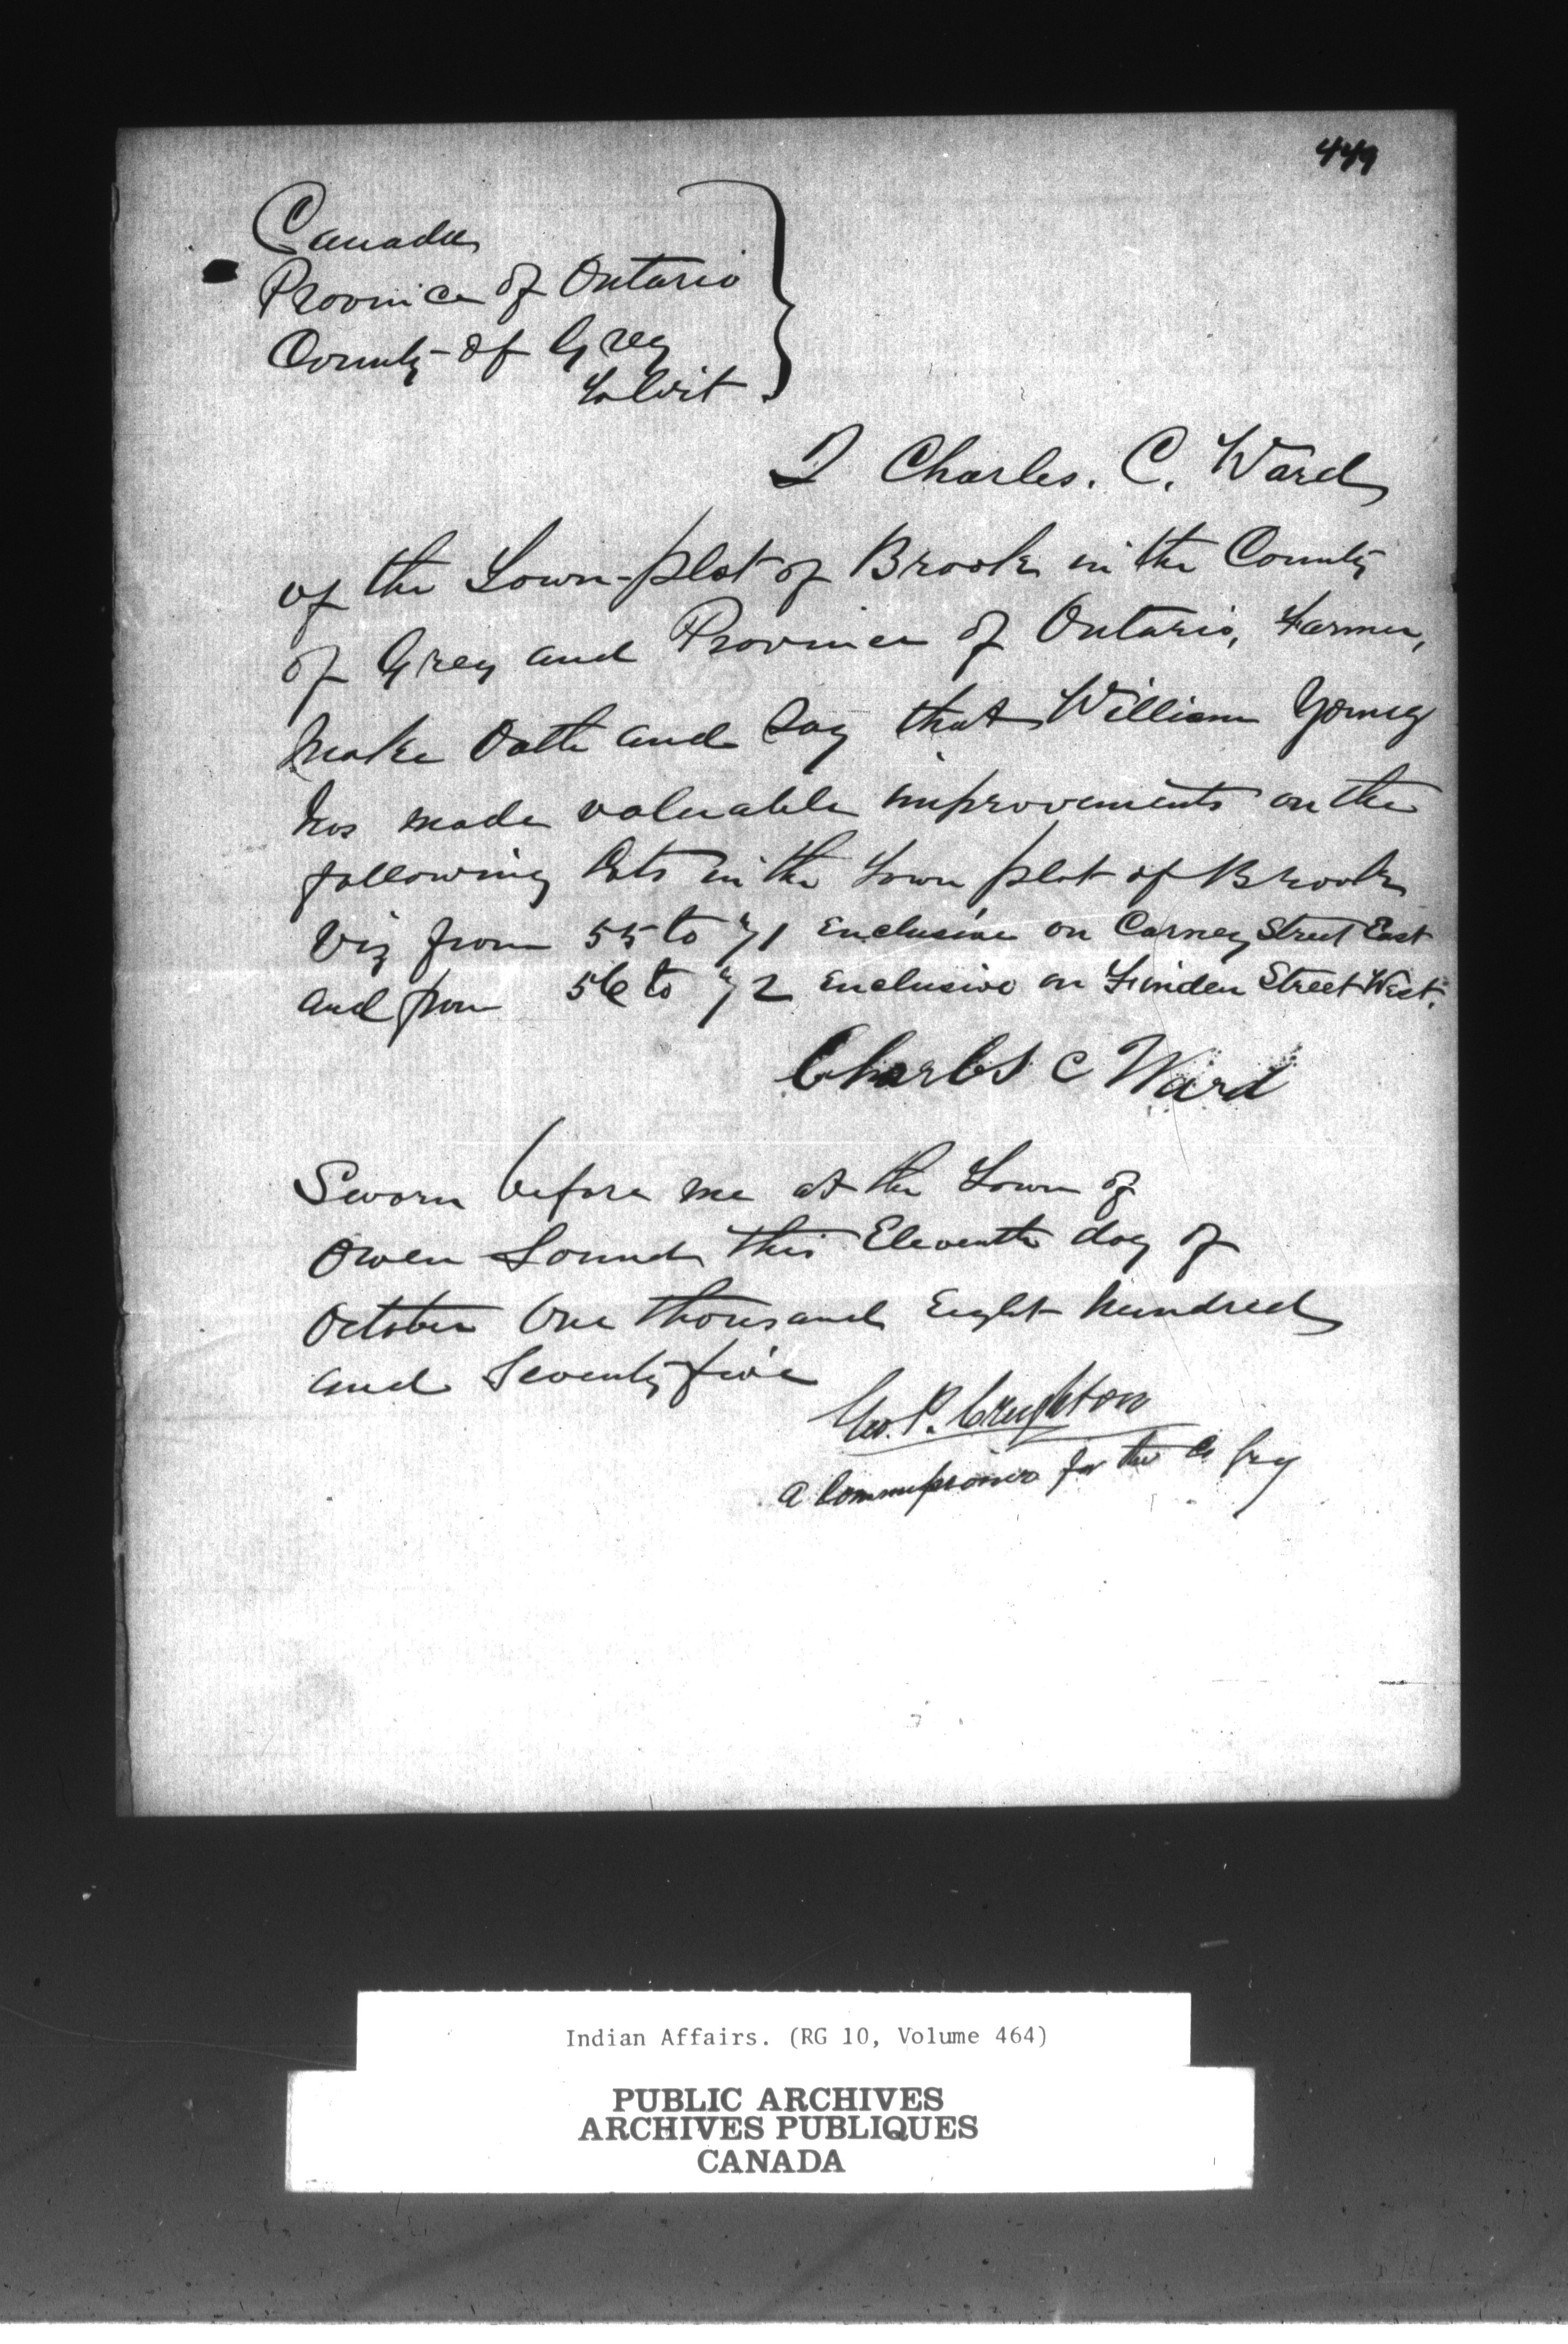 449
Canada
Province of Ontario
County of Grey
To Wit
I Charles. C. Ward
of the Town-plot of Brooke in the County
of Grey and Province of Ontario, Farmer,
Make Oath and Say that William Young
has made valuable improvements on the
following lots in the Town plot of Brooke
Viz from 55 to 71 Enclusive on Carney Street East
and from 56 to 72 Enclusive on Linden Street West.
Charles C Ward
Sworn before me at the Town of
Owen Sound this Eleventh day of
October One thousand Eight hundred
and Seventy five
Geo. P. Creighton
a Commissioner for the Co Grey
Indian Affairs. (RG 10, Volume 464)
PUBLIC ARCHIVES
ARCHIVES PUBLIQUES
CANADA